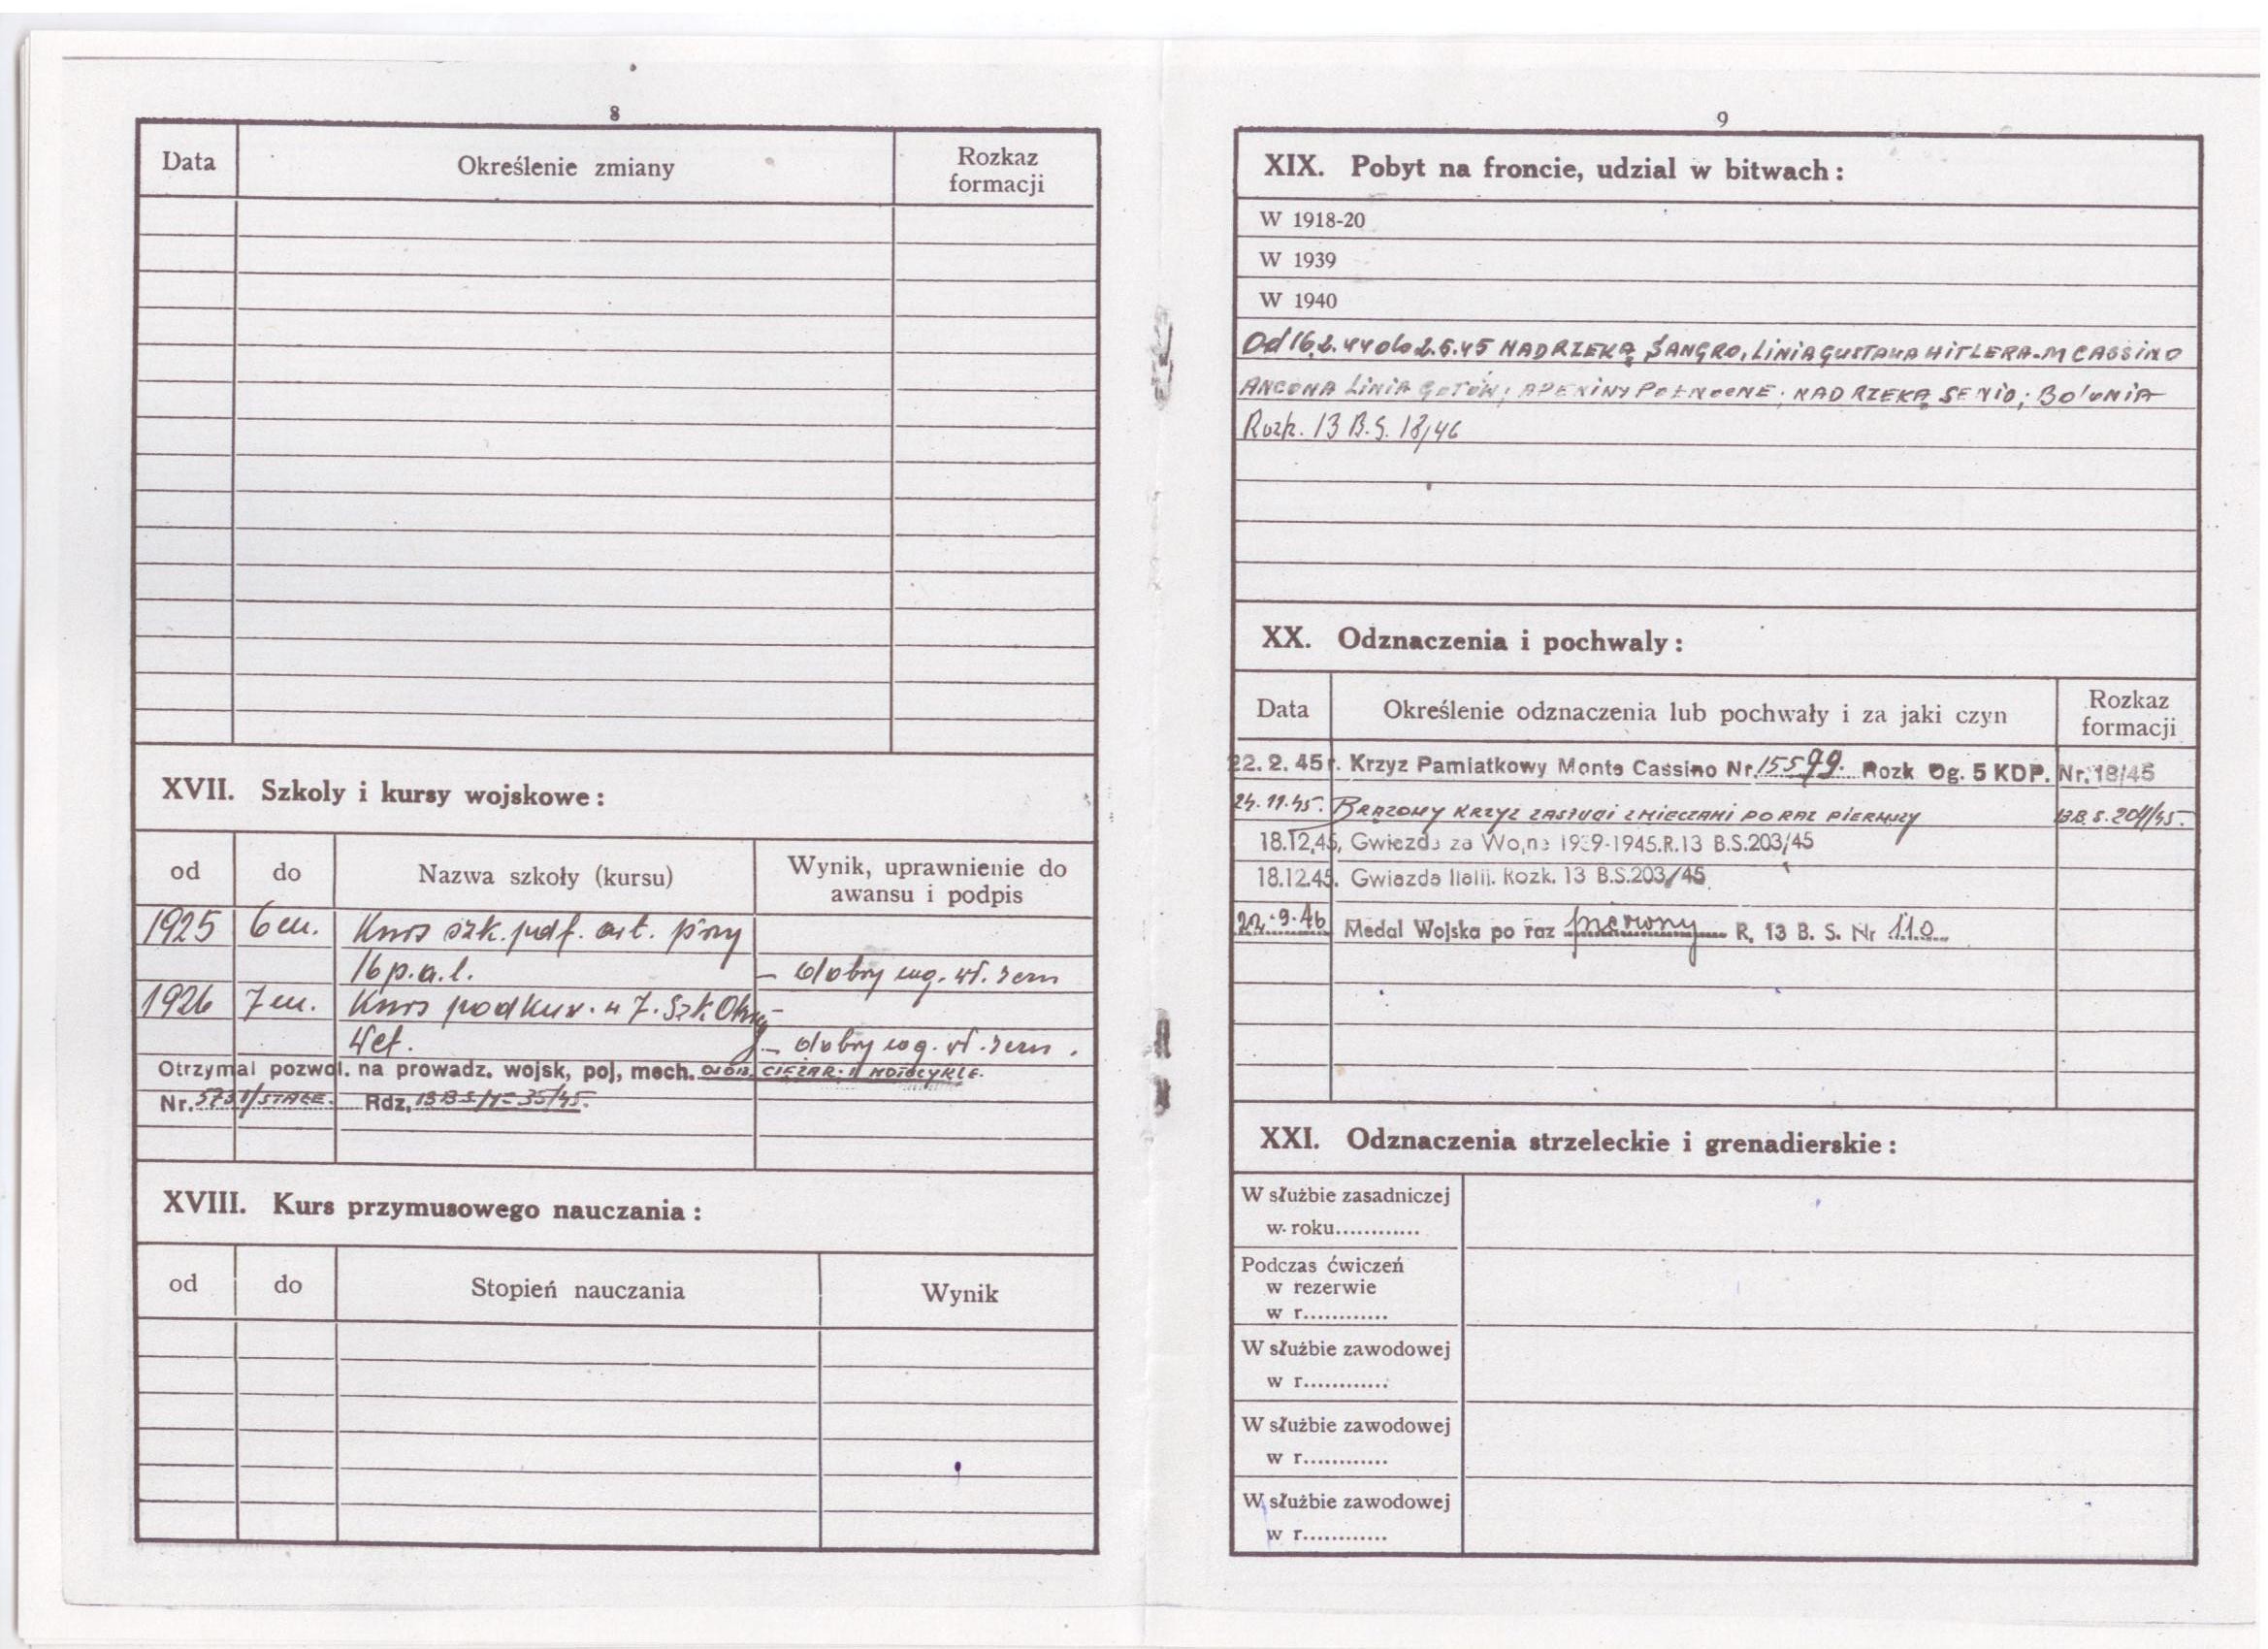 8
Data Określenie zmiany Rozkaz formacji
XVII. Szkoly i kursy wojskowe :
od do Nazwa szkoły (kursu) Wynik, uprawnienie do awansu i podpis
1925 6 m. Kurs szk. podf. art. przy
16 p.a.l. - dobry wg. wł. zezn
1926 7 m. Kurs podkuw. w 7. Szk Okr.
Wet. - dobry wg. wł. zezn.
Otrzymal pozwol. na prowadz. wojsk, poj, mech. osob. CIĘŻAR. II MOTOCYKLE.
Nr. /STAŁE. Rdz, 13 B S/ 35/45.
XVIII. Kurs przymusowego nauczania :
od do Stopień nauczania Wynik
9
XIX. Pobyt na froncie, udzial w bitwach :
W 1918-20
W 1939
W 1940
Od 16.2.44 do 2.5.45 NAD RZEKĄ SANGRO, LINIA GUSTAWA HITLERA-M CASSINO
ANCONA LINIA GOTÓW; APENINY PÓŁNOCNE; NAD RZEKĄ SENIO; BOLONIA
Rozk. 13 B.S. 18/46
XX. Odznaczenia i pochwaly :
Data Określenie odznaczenia lub pochwały i za jaki czyn Rozkaz formacji
22. 2. 45 r. Krzyz Pamiatkowy Monte Cassino Nr. 15599. Rozk Og. 5 KDP. Nr. 18/45
24.11.45. BRĄZOWY KRZYŻ ZASŁUGI Z MIECZAMI PO RAZ PIERWSZY 13 B. S. 204/45.
18.12.45, Gwiezda za Wojne 1939-1945.R.13 B.S.203/45
18.12.45. Gwiazda Italii. Rozk. 13 B.S.203/45
22.9.46 Medal Wojska po raz pierwszy R, 13 B. S. Nr 110
XXI. Odznaczenia strzeleckie i grenadierskie :
W służbie zasadniczej
w. roku............
Podczas ćwiczeń
w rezerwie
w r............
W służbie zawodowej
w r............
W służbie zawodowej
w r............
W służbie zawodowej
w r............